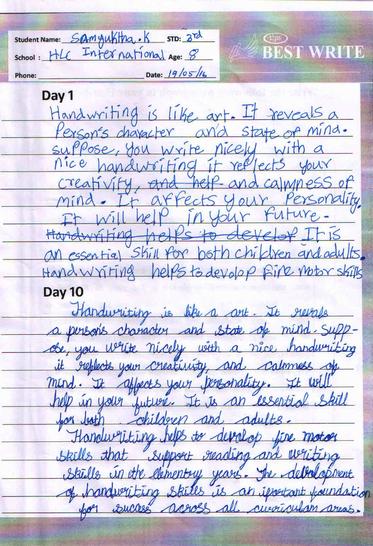 Student Name: Samyuktha.K STD: 3rd
School : HLC International Age: 8
Phone: Date: 19/05/16
tips
BEST WRITE
Day 1
Handwriting is like art. It reveals a
Person's character and state of mind.
suppose, you write nicely with a
nice handwriting it reflects your
creativity, and help and calmness of
mind. It affects your Personality.
It will help in your future.
Handwriting helps to develop It is
an essential skill for both children and adults.
Handwriting helps to develop fine motor skills
Day 10
Handwriting is like a art. It reveals
a persons character and state of mind. Supp-
ose, you write nicely with a nice handwriting
it reflects your creativity and calmness of
mind. It affects your personality. It will
help in your future. It is an essential skill
for both children and adults.
Handwriting helps to develop fine motor
skills that support reading and writing
skills in the elementry years. The development
of handwriting skills is an iportant foundation
for success across all curriculam areas.